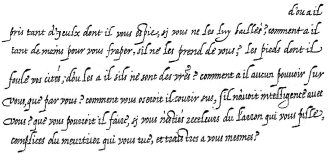 d'ou a il
pris tant d'yeulx dont il vous espie, si vous ne les luy baillés? comment a il
tant de mains pour vous fraper, s'il ne les prend de vous? les pieds dont il
foule vos cités, d'ou les a il s'ils ne sont des vostres? comment a il aucun pouvoir sur
vous, que par vous? comment vous oseroit il courir sus, s'il n'avoit intelligence avec
vous? que vous pourroit il faire, si vous n'estiés receleurs du larron qui vous pille,
complices du meurtrier qui vous tue, et traitres a vous mesmes?